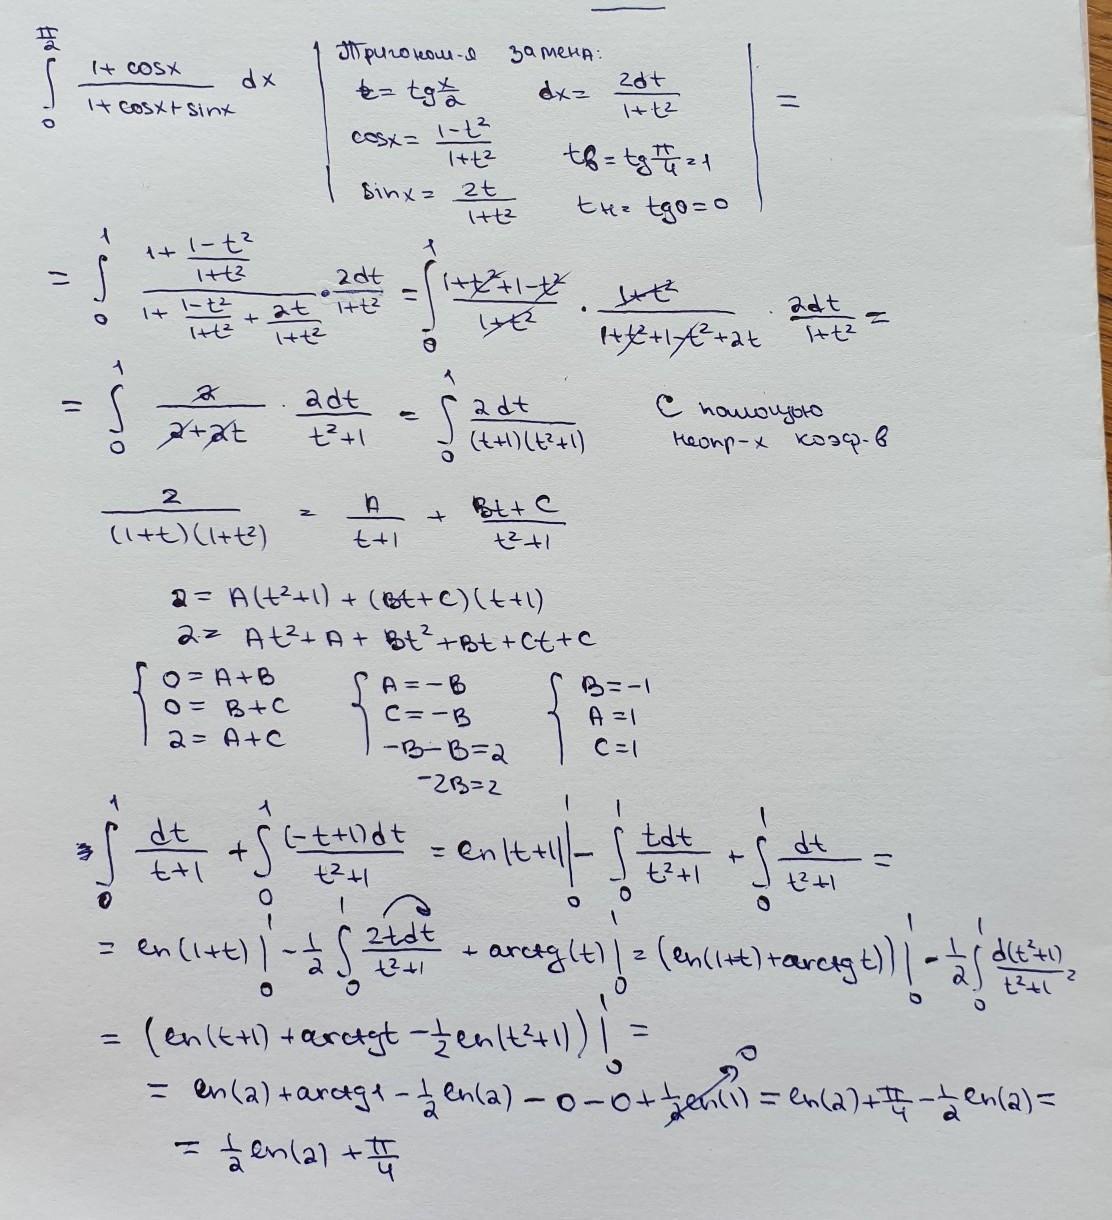 ∫₀^{π/2} (1+cosx)/(1+cosx+sinx) dx | Тригоном-я замена: t = tg x/2 dx = 2dt/(1+t²) cosx = (1-t²)/(1+t²) tв = tg π/4 = 1 sinx = 2t/(1+t²) tн = tg0 = 0 | =
= ∫₀¹ (1+(1-t²)/(1+t²))/(1+(1-t²)/(1+t²)+2t/(1+t²)) · 2dt/(1+t²) = ∫₀¹ (1+t²+1-t²)/(1+t²) · (1+t²)/(1+t²+1-t²+2t) · 2dt/(1+t²) =
= ∫₀¹ 2/(2+2t) · 2dt/(t²+1) = ∫₀¹ 2dt/((t+1)(t²+1)) С помощью
неопр-х коэф-в
2/((1+t)(1+t²)) = A/(t+1) + (Bt+C)/(t²+1)
2 = A(t²+1) + (Bt+C)(t+1)
2 = At²+A+Bt²+Bt+Ct+C
{ 0 = A+B { A = -B { B = -1
0 = B+C C = -B A = 1
2 = A+C -B-B = 2 C = 1
-2B = 2
= ∫₀¹ dt/(t+1) + ∫₀¹ (-t+1)dt/(t²+1) = ln|t+1| |₀¹ - ∫₀¹ tdt/(t²+1) + ∫₀¹ dt/(t²+1) =
= ln(1+t) |₀¹ - 1/2 ∫₀¹ 2tdt/(t²+1) + arctg(t) |₀¹ = (ln(1+t)+arctgt)) |₀¹ - 1/2 ∫₀¹ d(t²+1)/(t²+1) =
= (ln(t+1) + arctgt - 1/2 ln(t²+1)) |₀¹ =
= ln(2) + arctg1 - 1/2 ln(2) - 0 - 0 + 1/2 ln(1) → 0 = ln(2) + π/4 - 1/2 ln(2) =
= 1/2 ln(2) + π/4